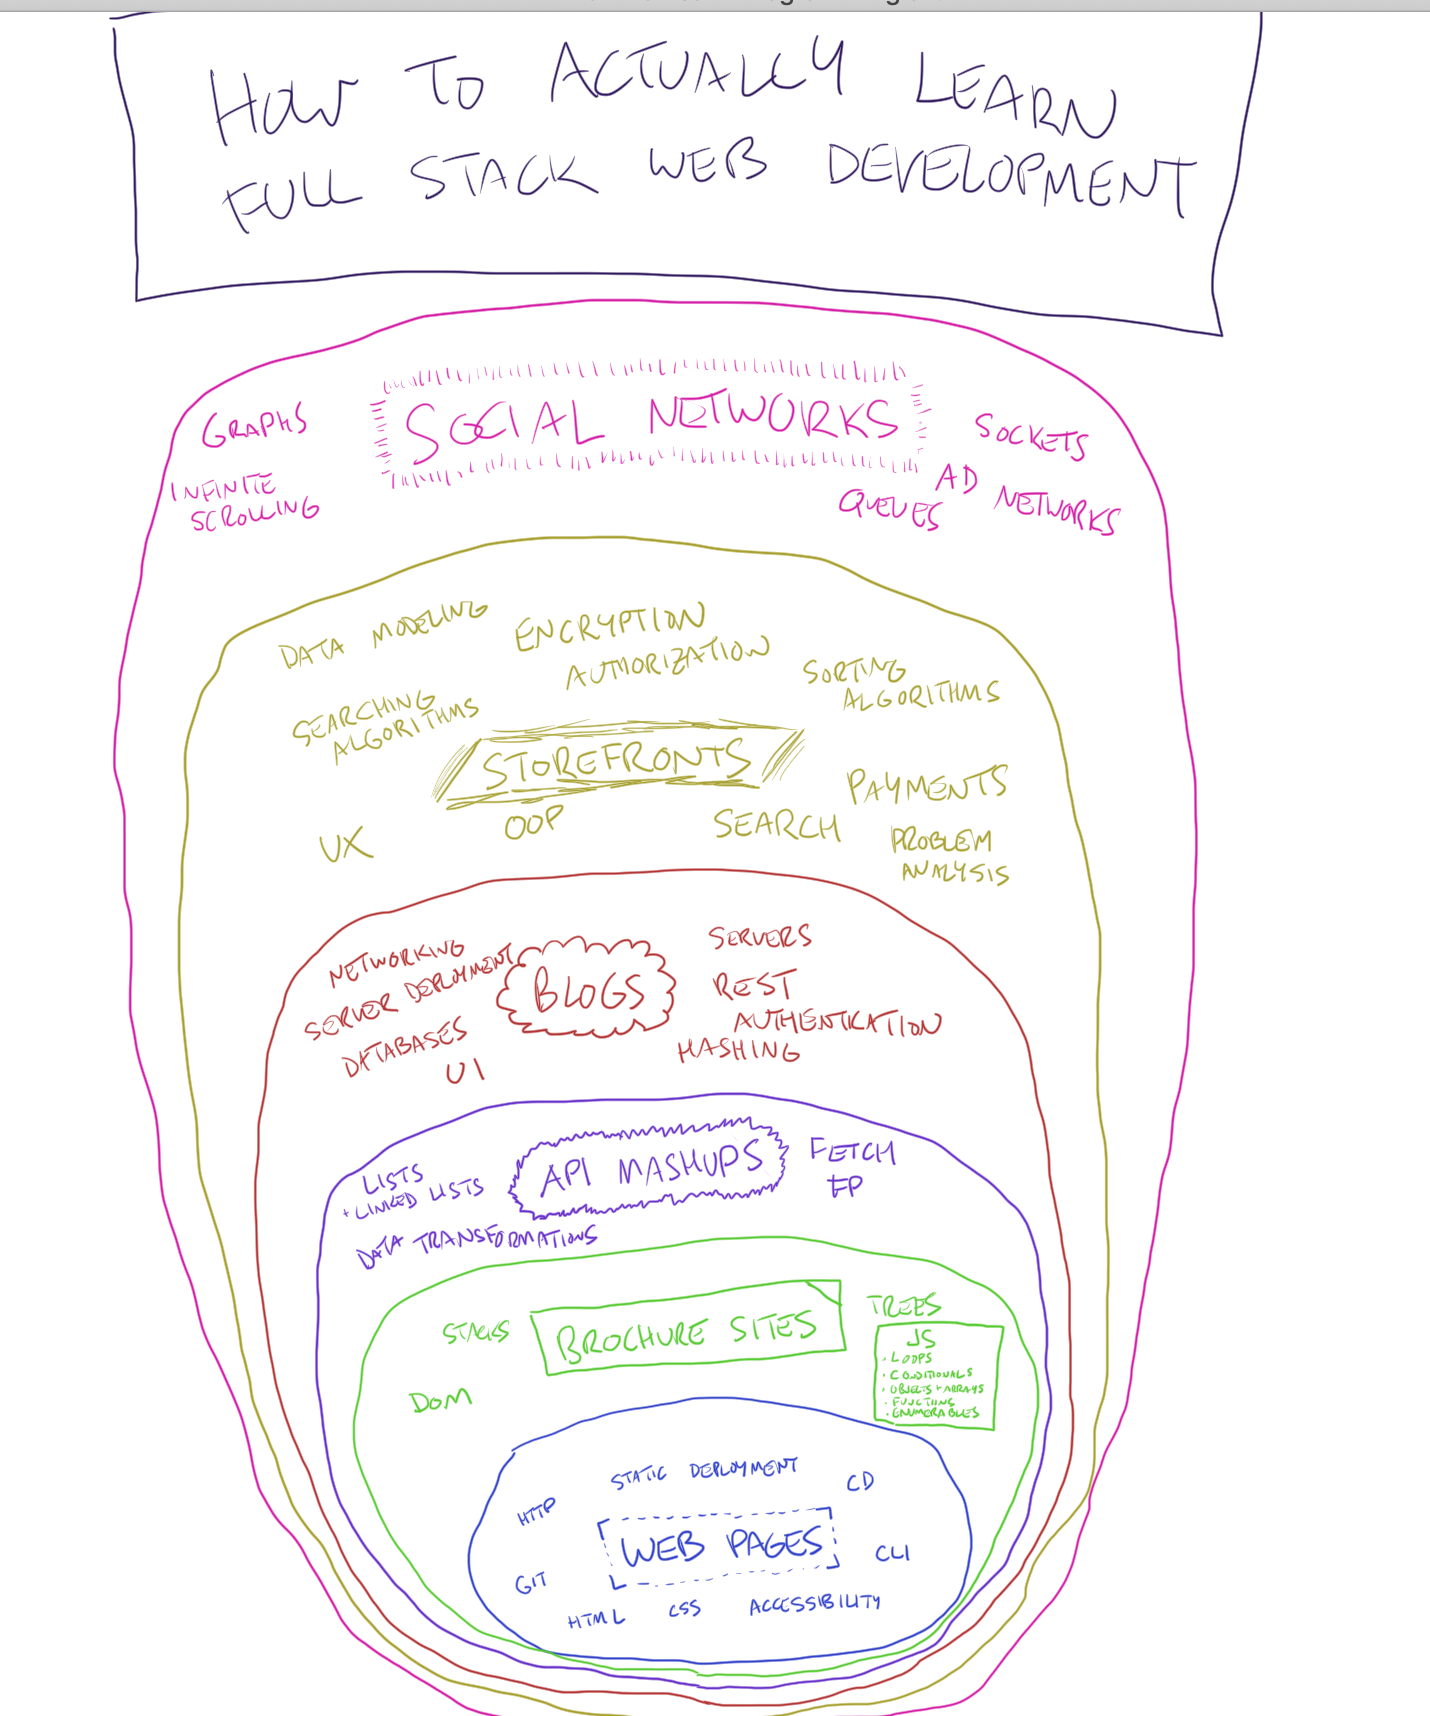 HOW TO ACTUALLY LEARN
FULL STACK WEB DEVELOPMENT
SOCIAL NETWORKS
GRAPHS
INFINITE
SCROLLING
SOCKETS
AD
NETWORKS
QUEUES
DATA MODELING
ENCRYPTION
AUTHORIZATION
SORTING
ALGORITHMS
SEARCHING
ALGORITHMS
STOREFRONTS
PAYMENTS
OOP
SEARCH
UX
PROBLEM
ANALYSIS
NETWORKING
SERVER DEPLOYMENT
DATABASES
UI
BLOGS
SERVERS
REST
AUTHENTICATION
HASHING
LISTS
+ LINKED LISTS
DATA TRANSFORMATIONS
API MASHUPS
FETCH
FP
STACKS
DOM
BROCHURE SITES
TREES
JS
· LOOPS
· CONDITIONALS
· OBJECTS + ARRAYS
· FUNCTIONS
· ENUMERABLES
STATIC DEPLOYMENT
CD
HTTP
WEB PAGES
CLI
GIT
HTML
CSS
ACCESSIBILITY